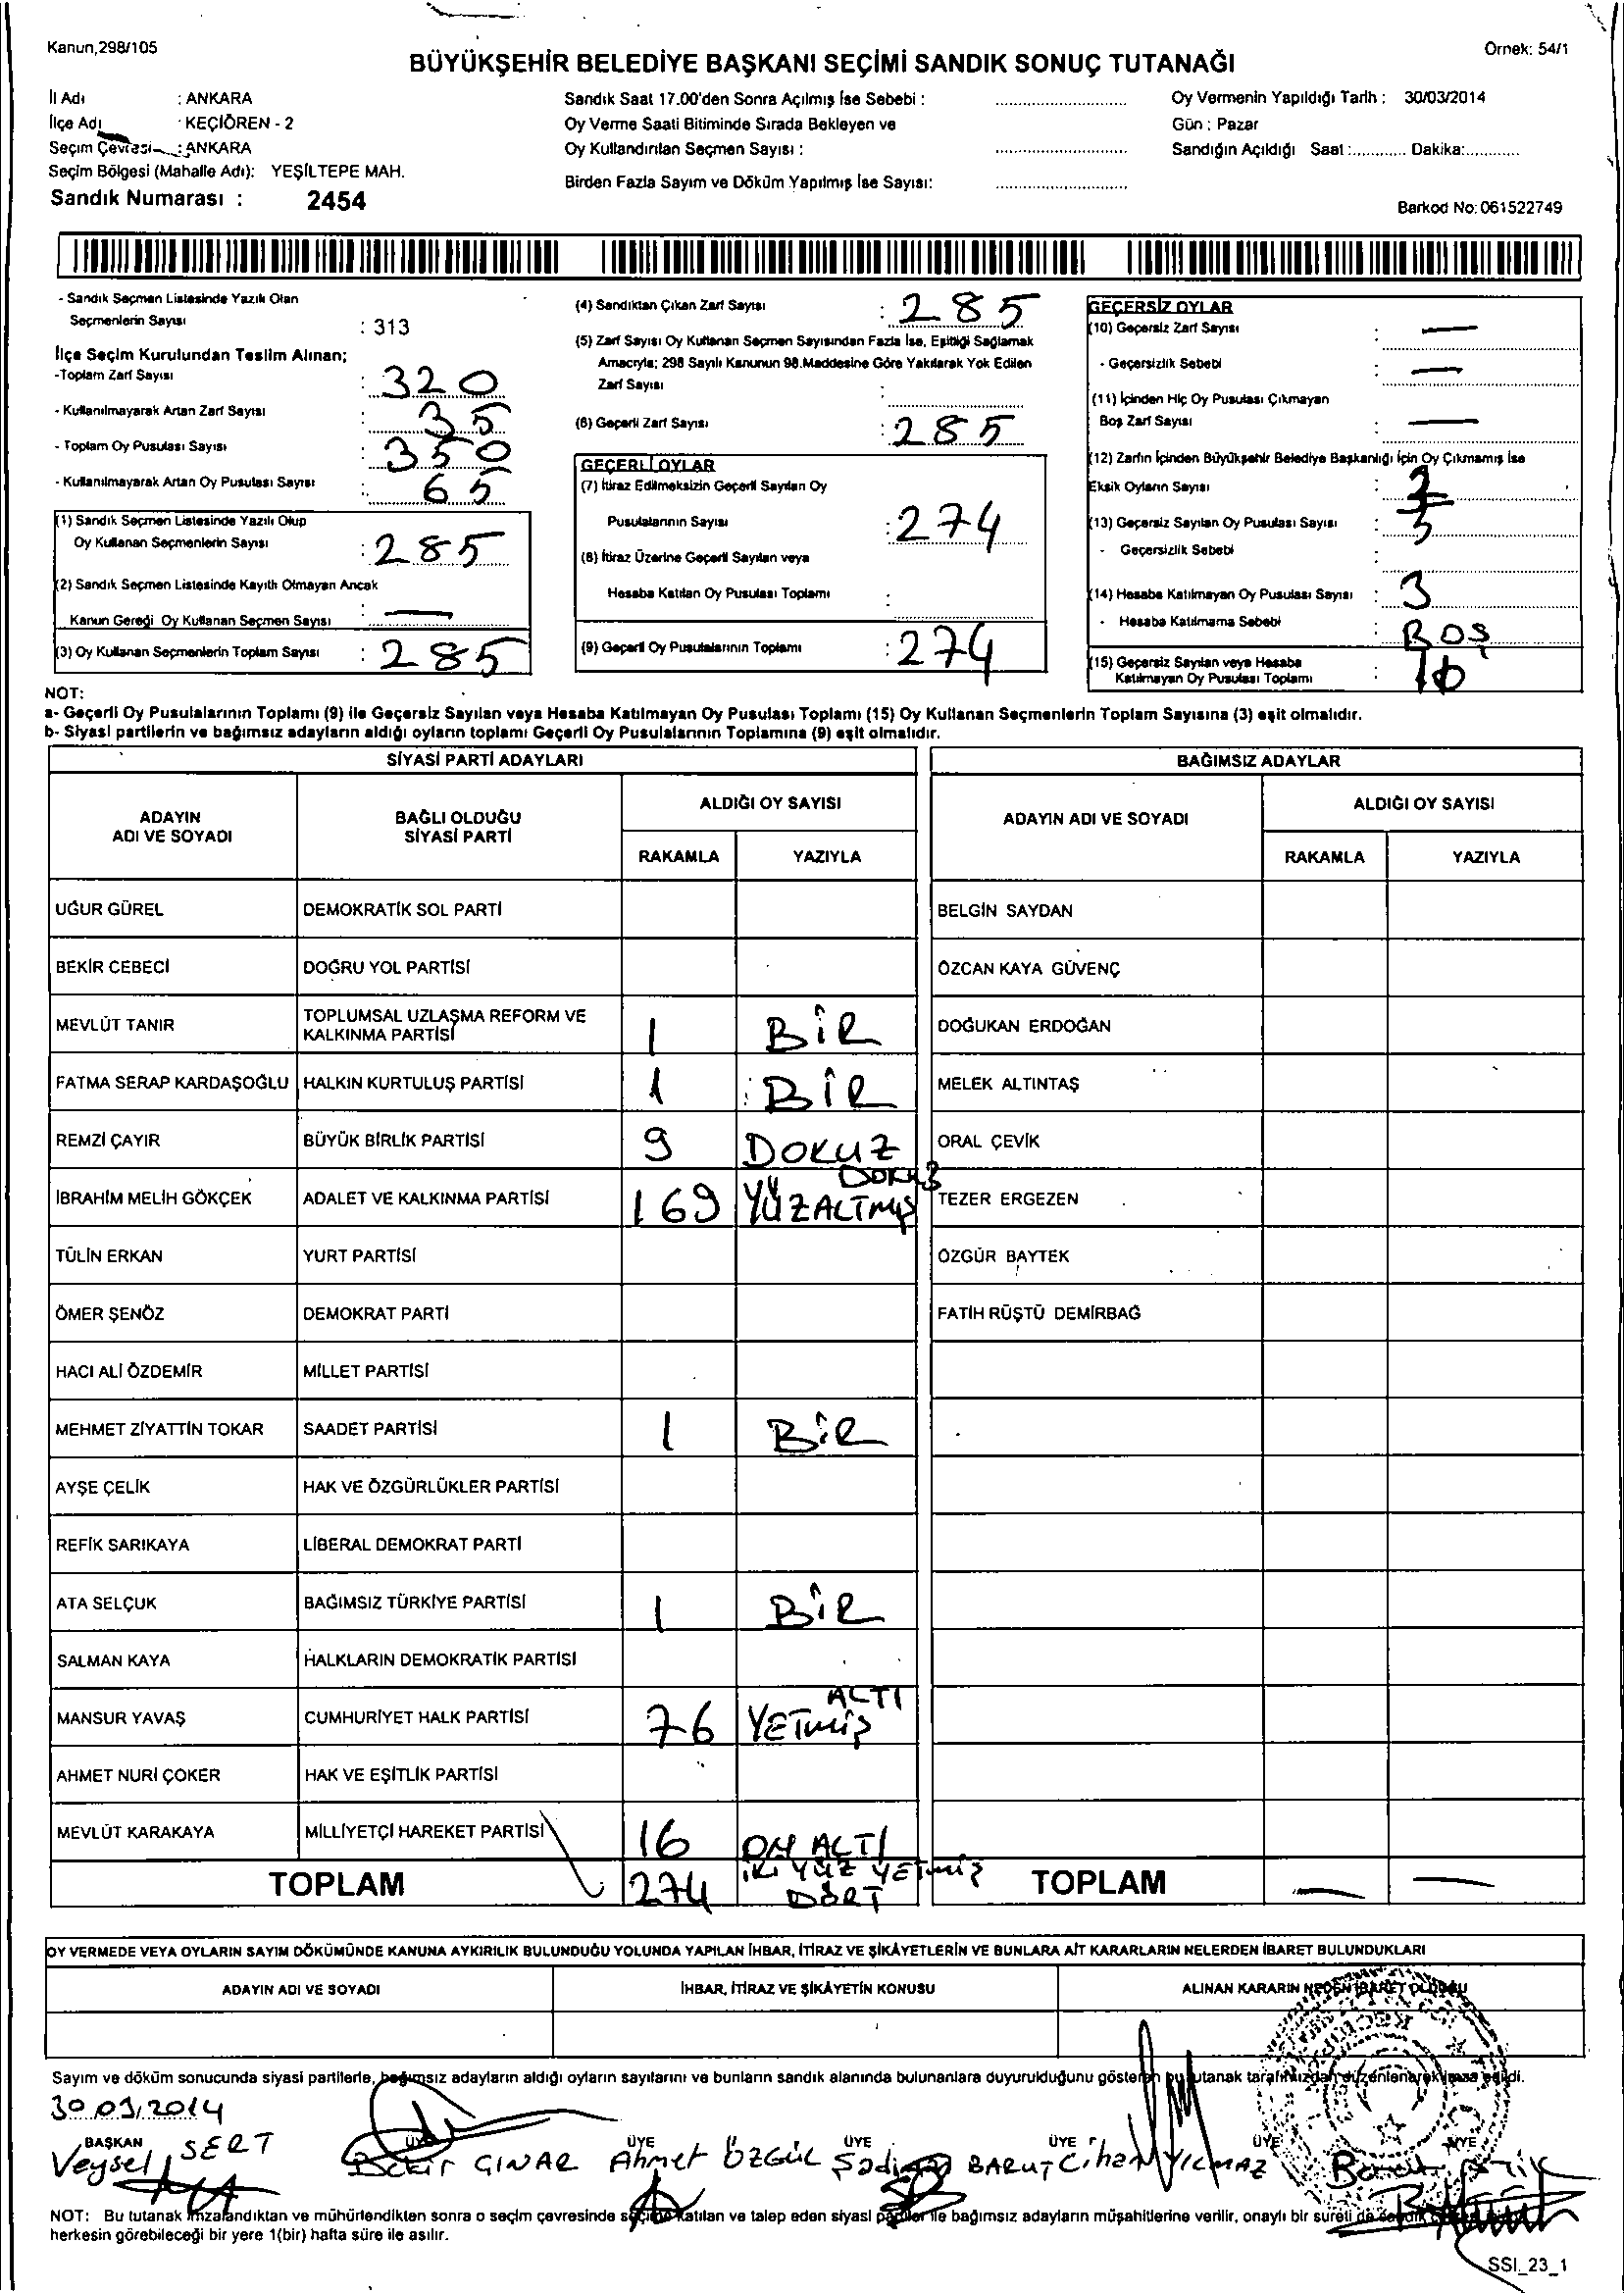 Kanun,298/105
Örnek: 54/1
BÜYÜKŞEHİR BELEDİYE BAŞKANI SEÇİMİ SANDIK SONUÇ TUTANAĞI
İl Adı : ANKARA
İlçe Adı : KEÇİÖREN - 2
Seçim Çevresi : ANKARA
Seçim Bölgesi (Mahalle Adı): YEŞİLTEPE MAH.
Sandık Numarası : 2454
Sandık Saat 17.00'den Sonra Açılmış İse Sebebi :
Oy Verme Saati Bitiminde Sırada Bekleyen ve
Oy Kullandırılan Seçmen Sayısı :
Birden Fazla Sayım ve Döküm Yapılmış İse Sayısı:
Oy Vermenin Yapıldığı Tarih : 30/03/2014
Gün : Pazar
Sandığın Açıldığı Saat :............ Dakika:............
Barkod No: 061522749
- Sandık Seçmen Listesinde Yazılı Olan
Seçmenlerin Sayısı : 313
İlçe Seçim Kurulundan Teslim Alınan;
-Toplam Zarf Sayısı : 320
- Kullanılmayarak Artan Zarf Sayısı : 35
- Toplam Oy Pusulası Sayısı : 350
- Kullanılmayarak Artan Oy Pusulası Sayısı : 65
(1) Sandık Seçmen Listesinde Yazılı Olup
Oy Kullanan Seçmenlerin Sayısı : 285
(2) Sandık Seçmen Listesinde Kayıtlı Olmayan Ancak
Kanun Gereği Oy Kullanan Seçmen Sayısı : —
(3) Oy Kullanan Seçmenlerin Toplam Sayısı : 285
(4) Sandıktan Çıkan Zarf Sayısı : 285
(5) Zarf Sayısı Oy Kullanan Seçmen Sayısından Fazla İse, Eşitliği Sağlamak
Amacıyla; 298 Sayılı Kanunun 98.Maddesine Göre Yakılarak Yok Edilen
Zarf Sayısı :
(6) Geçerli Zarf Sayısı : 285
GEÇERLİ OYLAR
(7) İtiraz Edilmeksizin Geçerli Sayılan Oy
Pusulalarının Sayısı : 274
(8) İtiraz Üzerine Geçerli Sayılan veya
Hesaba Katılan Oy Pusulası Toplamı :
(9) Geçerli Oy Pusulalarının Toplamı : 274
GEÇERSİZ OYLAR
(10) Geçersiz Zarf Sayısı : —
- Geçersizlik Sebebi : —
(11) İçinden Hiç Oy Pusulası Çıkmayan
Boş Zarf Sayısı : —
(12) Zarfın İçinden Büyükşehir Belediye Başkanlığı İçin Oy Çıkmamış İse
Eksik Oyların Sayısı :
(13) Geçersiz Sayılan Oy Pusulası Sayısı : 5
- Geçersizlik Sebebi :
(14) Hesaba Katılmayan Oy Pusulası Sayısı : 3
- Hesaba Katılmama Sebebi : BOŞ
(15) Geçersiz Sayılan veya Hesaba
Katılmayan Oy Pusulası Toplamı : 10
NOT:
a- Geçerli Oy Pusulalarının Toplamı (9) ile Geçersiz Sayılan veya Hesaba Katılmayan Oy Pusulası Toplamı (15) Oy Kullanan Seçmenlerin Toplam Sayısına (3) eşit olmalıdır.
b- Siyasi partilerin ve bağımsız adayların aldığı oyların toplamı Geçerli Oy Pusulalarının Toplamına (9) eşit olmalıdır.
SİYASİ PARTİ ADAYLARI
ADAYIN ADI VE SOYADI BAĞLI OLDUĞU SİYASİ PARTİ ALDIĞI OY SAYISI
RAKAMLA YAZIYLA
UĞUR GÜREL DEMOKRATİK SOL PARTİ
BEKİR CEBECİ DOĞRU YOL PARTİSİ
MEVLÜT TANIR TOPLUMSAL UZLAŞMA REFORM VE KALKINMA PARTİSİ 1 BİR
FATMA SERAP KARDAŞOĞLU HALKIN KURTULUŞ PARTİSİ 1 BİR
REMZİ ÇAYIR BÜYÜK BİRLİK PARTİSİ 9 DOKUZ
İBRAHİM MELİH GÖKÇEK ADALET VE KALKINMA PARTİSİ 169 YÜZALTMIŞ DOKUZ
TÜLİN ERKAN YURT PARTİSİ
ÖMER ŞENÖZ DEMOKRAT PARTİ
HACI ALİ ÖZDEMİR MİLLET PARTİSİ
MEHMET ZİYATTİN TOKAR SAADET PARTİSİ 1 BİR
AYŞE ÇELİK HAK VE ÖZGÜRLÜKLER PARTİSİ
REFİK SARIKAYA LİBERAL DEMOKRAT PARTİ
ATA SELÇUK BAĞIMSIZ TÜRKİYE PARTİSİ 1 BİR
SALMAN KAYA HALKLARIN DEMOKRATİK PARTİSİ
MANSUR YAVAŞ CUMHURİYET HALK PARTİSİ 76 YETMİŞ ALTI
AHMET NURİ ÇOKER HAK VE EŞİTLİK PARTİSİ
MEVLÜT KARAKAYA MİLLİYETÇİ HAREKET PARTİSİ 16 ON ALTI
TOPLAM 274 İKİ YÜZ YETMİŞ DÖRT
BAĞIMSIZ ADAYLAR
ADAYIN ADI VE SOYADI ALDIĞI OY SAYISI
RAKAMLA YAZIYLA
BELGİN SAYDAN
ÖZCAN KAYA GÜVENÇ
DOĞUKAN ERDOĞAN
MELEK ALTINTAŞ
ORAL ÇEVİK
TEZER ERGEZEN
ÖZGÜR BAYTEK
FATİH RÜŞTÜ DEMİRBAĞ
TOPLAM — —
OY VERMEDE VEYA OYLARIN SAYIM DÖKÜMÜNDE KANUNA AYKIRILIK BULUNDUĞU YOLUNDA YAPILAN İHBAR, İTİRAZ VE ŞİKÂYETLERİN VE BUNLARA AİT KARARLARIN NELERDEN İBARET BULUNDUKLARI
ADAYIN ADI VE SOYADI İHBAR, İTİRAZ VE ŞİKÂYETİN KONUSU ALINAN KARARIN NEDEN İBARET OLDUĞU
Sayım ve döküm sonucunda siyasi partilerle, bağımsız adayların aldığı oyların sayılarını ve bunların sandık alanında bulunanlara duyurulduğunu gösteren bu tutanak tarafımızdan düzenlenerek imza edildi.
30.03.2014
BAŞKAN ÜYE ÜYE ÜYE ÜYE ÜYE ÜYE
Veysel SERT Bekir ÇINAR Ahmet ÖZGÜL BARUT Cihan YILMAZ
NOT: Bu tutanak imzalandıktan ve mühürlendikten sonra o seçim çevresinde seçime katılan ve talep eden siyasi partiler ile bağımsız adayların müşahitlerine verilir, onaylı bir sureti de
herkesin görebileceği bir yere 1(bir) hafta süre ile asılır.
SSI_23_1